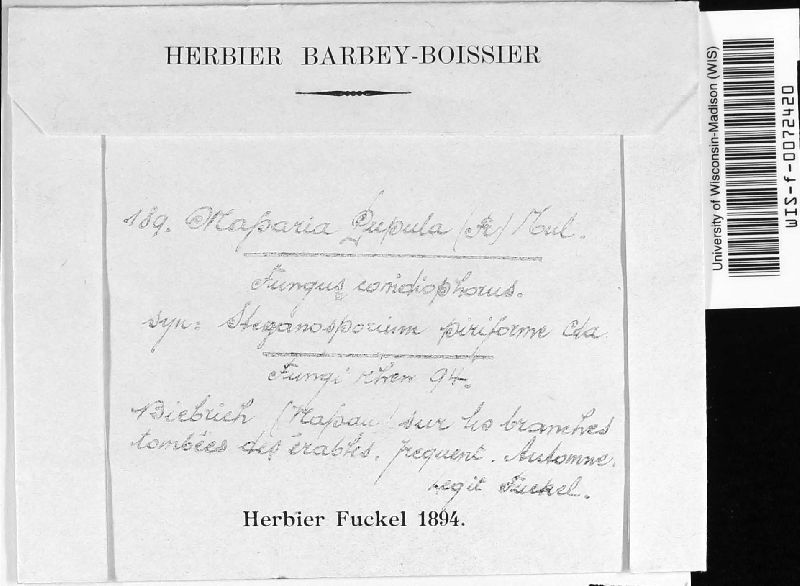 HERBIER BARBEY-BOISSIER
189. Massaria Pupula (Fr) Tul.
Fungus conidiophorus.
syn: Steganosporium piriforme Cda
Fungi rhen 94.
Biebrich (Nassau) sur les branches
tombées des érables. frequent. Automne.
legit Fuckel.
Herbier Fuckel 1894.
University of Wisconsin-Madison (WIS)
WIS-f-0072420